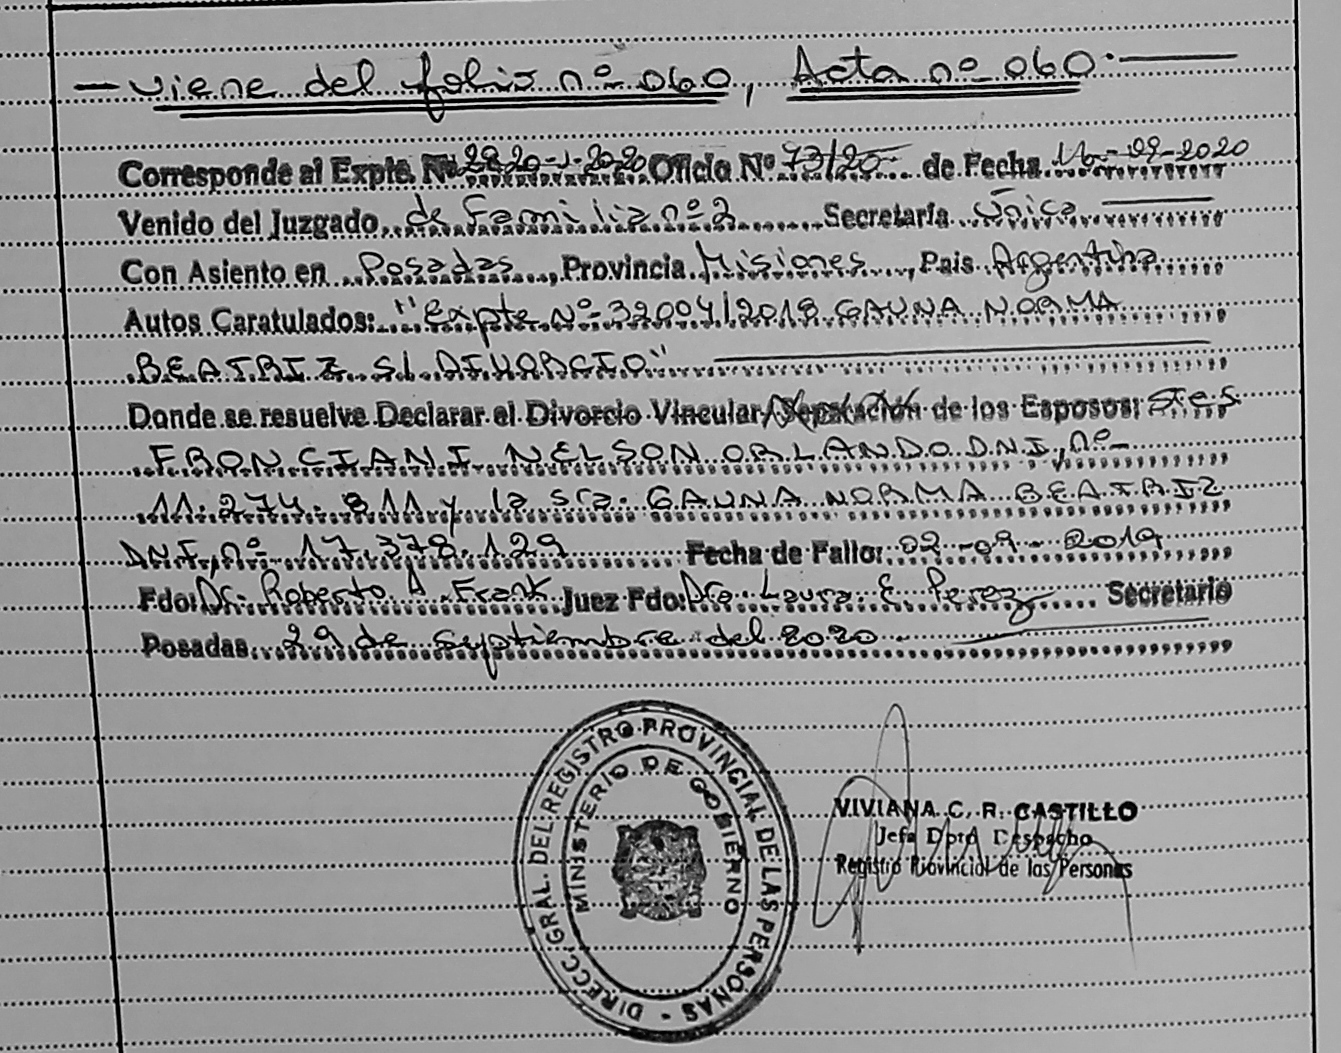 — Viene del folio nº 060, Acta nº 060. —
Corresponde al Expte. Nº 2920-J-2020 Oficio Nº 73/20 de Fecha 16-09-2020
Venido del Juzgado de Familia nº 2 Secretaría Única
Con Asiento en Posadas, Provincia Misiones, Pais Argentina
Autos Caratulados: "Expte Nº 32004/2018 GAUNA NORMA
BEATRIZ S/ DIVORCIO"
Donde se resuelve Declarar el Divorcio Vincular/Separación de los Esposos: Stes
FRONCIANI NELSON ORLANDO D.N.I, nº
11.274.811 y la sra. GAUNA NORMA BEATRIZ
D.N.I, nº 17.378.129 Fecha de Fallo: 02-09-2019
Fdo: Dr. Roberto A. Frank Juez Fdo: Dra Laura E. Perez Secretario
Posadas, 29 de septiembre del 2020.
DIRECC. GRAL. DEL REGISTRO PROVINCIAL DE LAS PERSONAS -
MINISTERIO DE GOBIERNO
VIVIANA C. R. CASTILLO
Jefa Dpto Despacho
Registro Provincial de las Personas